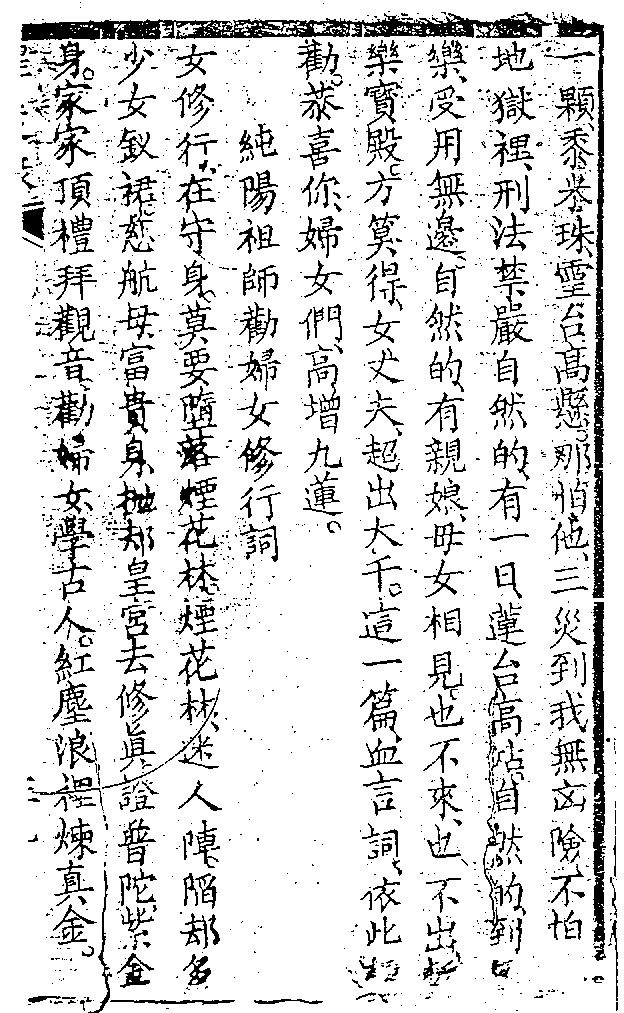 一顆、黍米珠、靈台高懸、那怕他、三災到我無凶險、不怕
地獄裡、刑法禁嚴自然的、有一日、蓮台高站、自然的、到
樂、受用無邊、自然的、有親娘、毋女相見、也不來、也不出、
樂寳殿、方算得、女丈夫、超出大千。這一篇、血言詞、依此
勸。恭喜你、婦女們、高增九蓮。
純陽祖師勸婦女修行詞
女修行、在守身、莫要墮落煙花林、煙花林、迷人陣、陷却多
少女釵裙、慈航毋、富貴身、抛却皇宮去修眞、證普陀、紫金
身。家家頂禮拜觀音、勸婦女、學古人。紅塵浪裡煉真金。